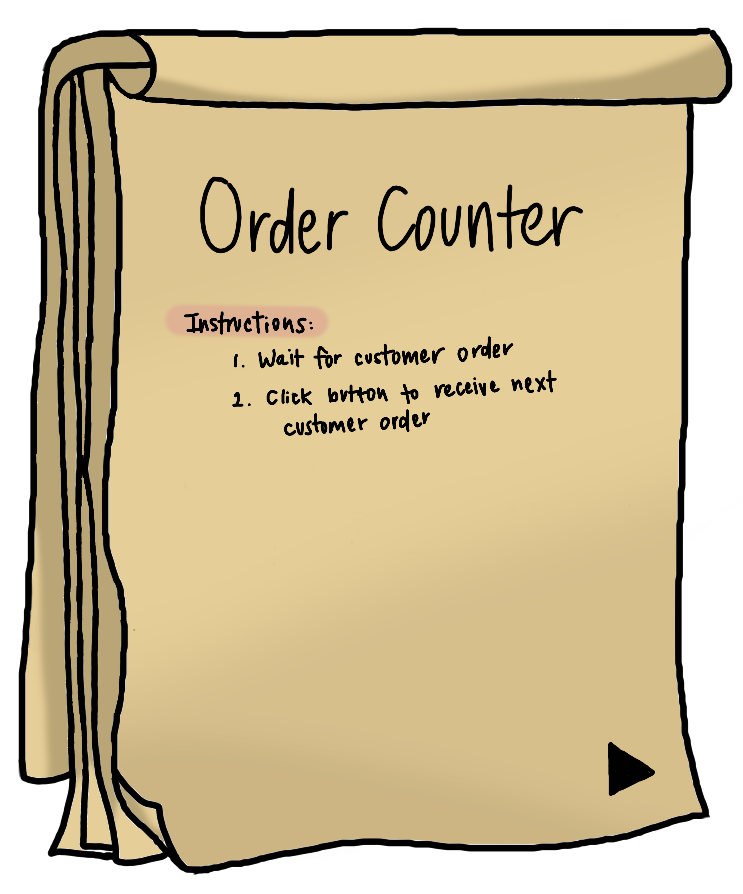 Order Counter
Instructions:
1. Wait for customer order
2. Click button to receive next
customer order